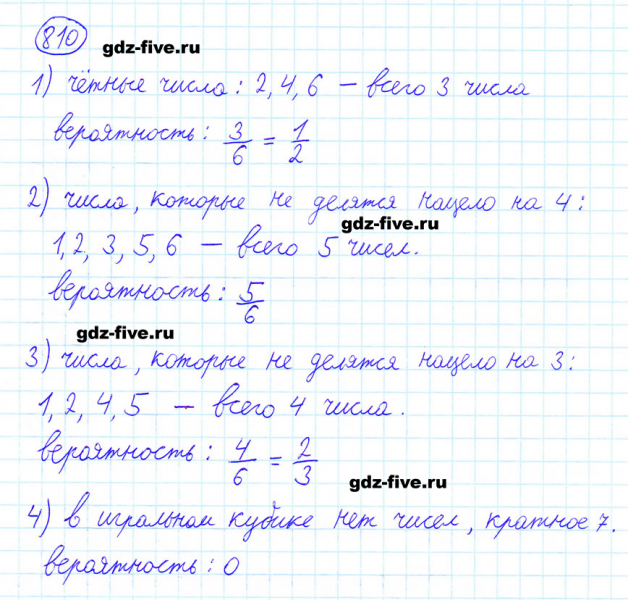 810 gdz-five.ru
1) чётные числа: 2, 4, 6 — всего 3 числа
вероятность: 3/6 = 1/2
2) числа, которые не делятся нацело на 4:
gdz-five.ru
1, 2, 3, 5, 6 — всего 5 чисел.
вероятность: 5/6
gdz-five.ru
3) числа, которые не делятся нацело на 3:
1, 2, 4, 5 — всего 4 числа.
вероятность: 4/6 = 2/3
gdz-five.ru
4) в игральном кубике нет чисел, кратное 7.
вероятность: 0